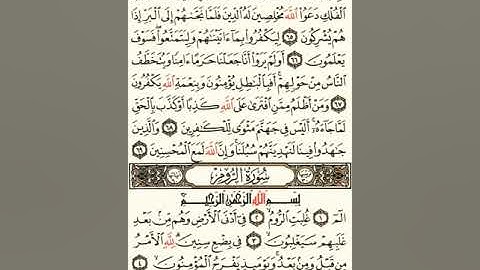 ٱلْفُلْكِ دَعَوُا۟ ٱللَّهَ مُخْلِصِينَ لَهُ ٱلدِّينَ فَلَمَّا نَجَّىٰهُمْ إِلَى ٱلْبَرِّ إِذَا
هُمْ يُشْرِكُونَ ٦٥ لِيَكْفُرُوا۟ بِمَآ ءَاتَيْنَٰهُمْ وَلِيَتَمَتَّعُوا۟ فَسَوْفَ
يَعْلَمُونَ ٦٦ أَوَلَمْ يَرَوْا۟ أَنَّا جَعَلْنَا حَرَمًا ءَامِنًا وَيُتَخَطَّفُ
ٱلنَّاسُ مِنْ حَوْلِهِمْ أَفَبِٱلْبَٰطِلِ يُؤْمِنُونَ وَبِنِعْمَةِ ٱللَّهِ يَكْفُرُونَ
٦٧ وَمَنْ أَظْلَمُ مِمَّنِ ٱفْتَرَىٰ عَلَى ٱللَّهِ كَذِبًا أَوْ كَذَّبَ بِٱلْحَقِّ
لَمَّا جَآءَهُۥٓ أَلَيْسَ فِى جَهَنَّمَ مَثْوًى لِّلْكَٰفِرِينَ ٦٨ وَٱلَّذِينَ
جَٰهَدُوا۟ فِينَا لَنَهْدِيَنَّهُمْ سُبُلَنَا وَإِنَّ ٱللَّهَ لَمَعَ ٱلْمُحْسِنِينَ ٦٩
سُورَةُ ٱلرُّومِ
بِسْمِ ٱللَّهِ ٱلرَّحْمَٰنِ ٱلرَّحِيمِ
الٓمٓ ١ غُلِبَتِ ٱلرُّومُ ٢ فِىٓ أَدْنَى ٱلْأَرْضِ وَهُم مِّنۢ بَعْدِ
غَلَبِهِمْ سَيَغْلِبُونَ ٣ فِى بِضْعِ سِنِينَ لِلَّهِ ٱلْأَمْرُ
مِن قَبْلُ وَمِنۢ بَعْدُ وَيَوْمَئِذٍ يَفْرَحُ ٱلْمُؤْمِنُونَ ٤